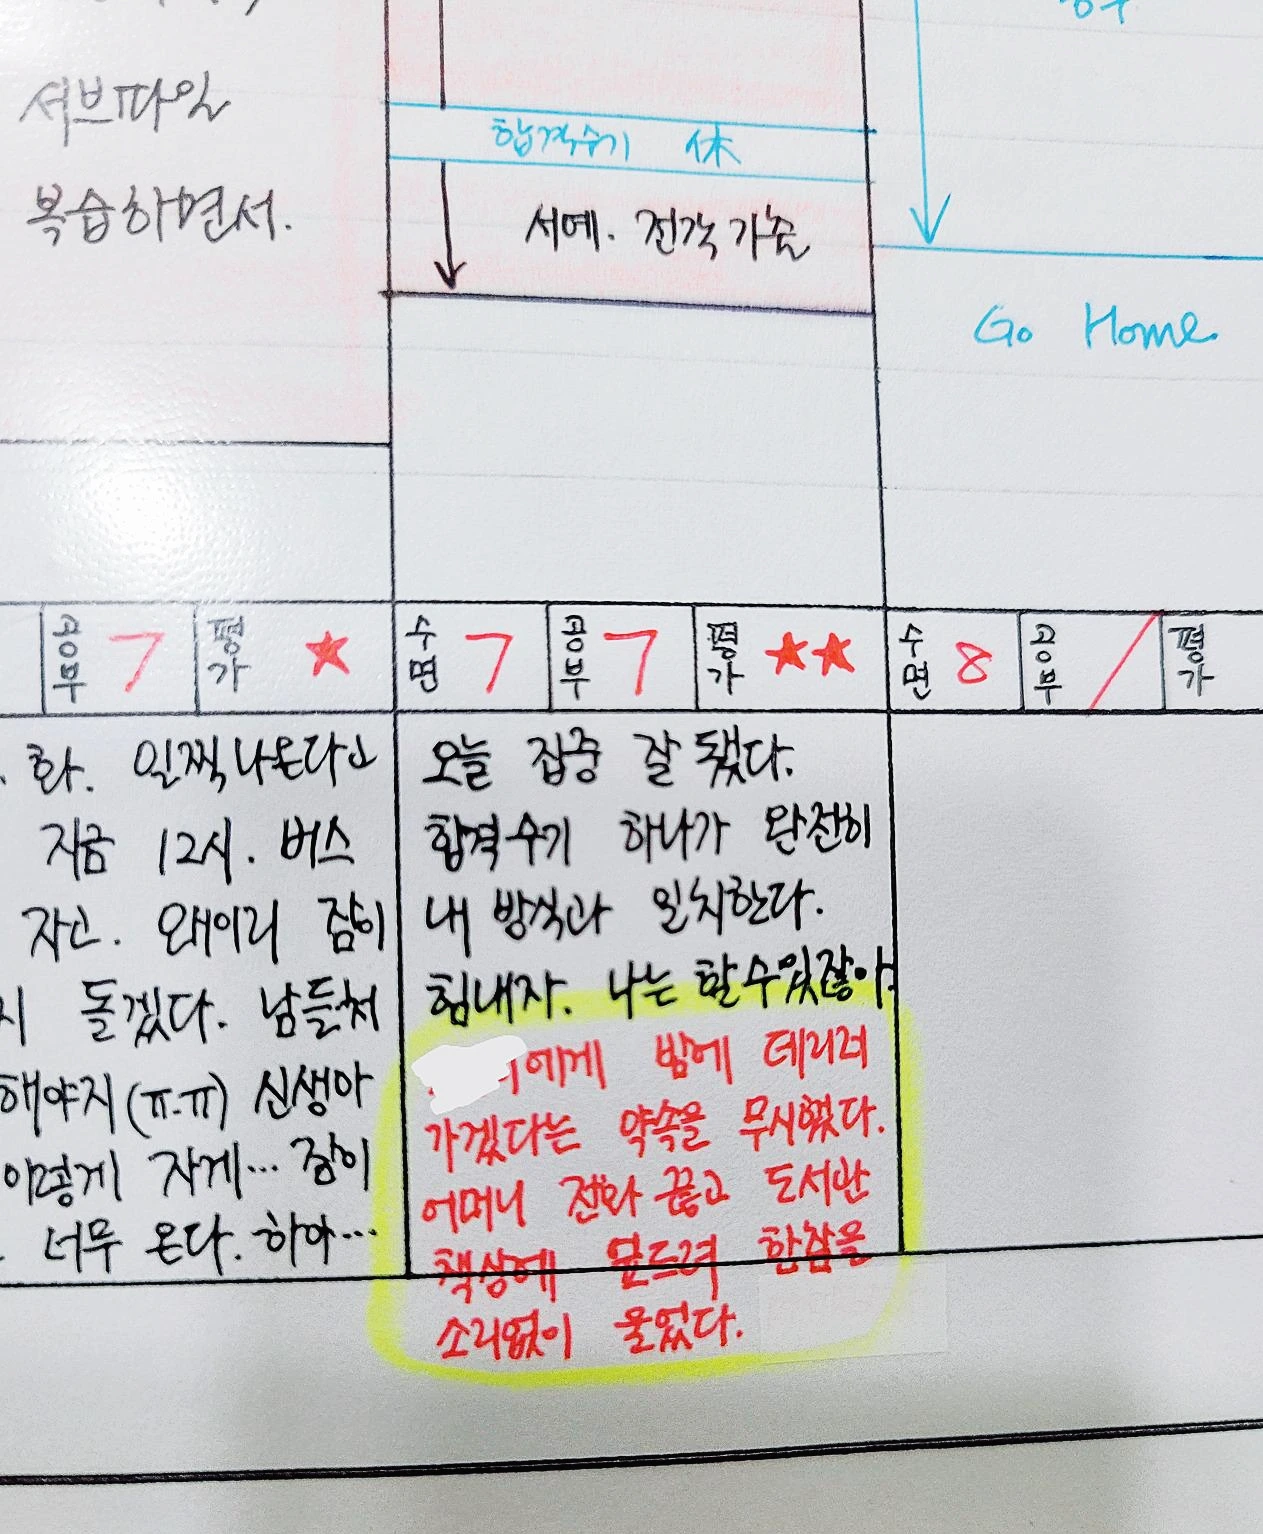 서브파일
복습하면서.
합격수기 休
서예. 전각 가손
Go Home.
공부 7 평가 ★
수면 7 공부 7 평가 ★★
수면 8 공부 / 평가
화. 일찍나온다고
지금 12시. 버스
자고. 왜이리 잠이
돌겠다. 남들처
해야지(ㅠ.ㅠ) 신생아
이렇게 자게... 잠이
너무 온다. 하아...
오늘 집중 잘 됐다.
합격수기 하나가 완전히
내 방식과 일치한다.
힘내자. 나는 할수있잖아.
에게 밤에 데리러
가겠다는 약속을 무시했다.
어머니 전화 끊고 도서관
책상에 엎드려 한참을
소리없이 울었다.